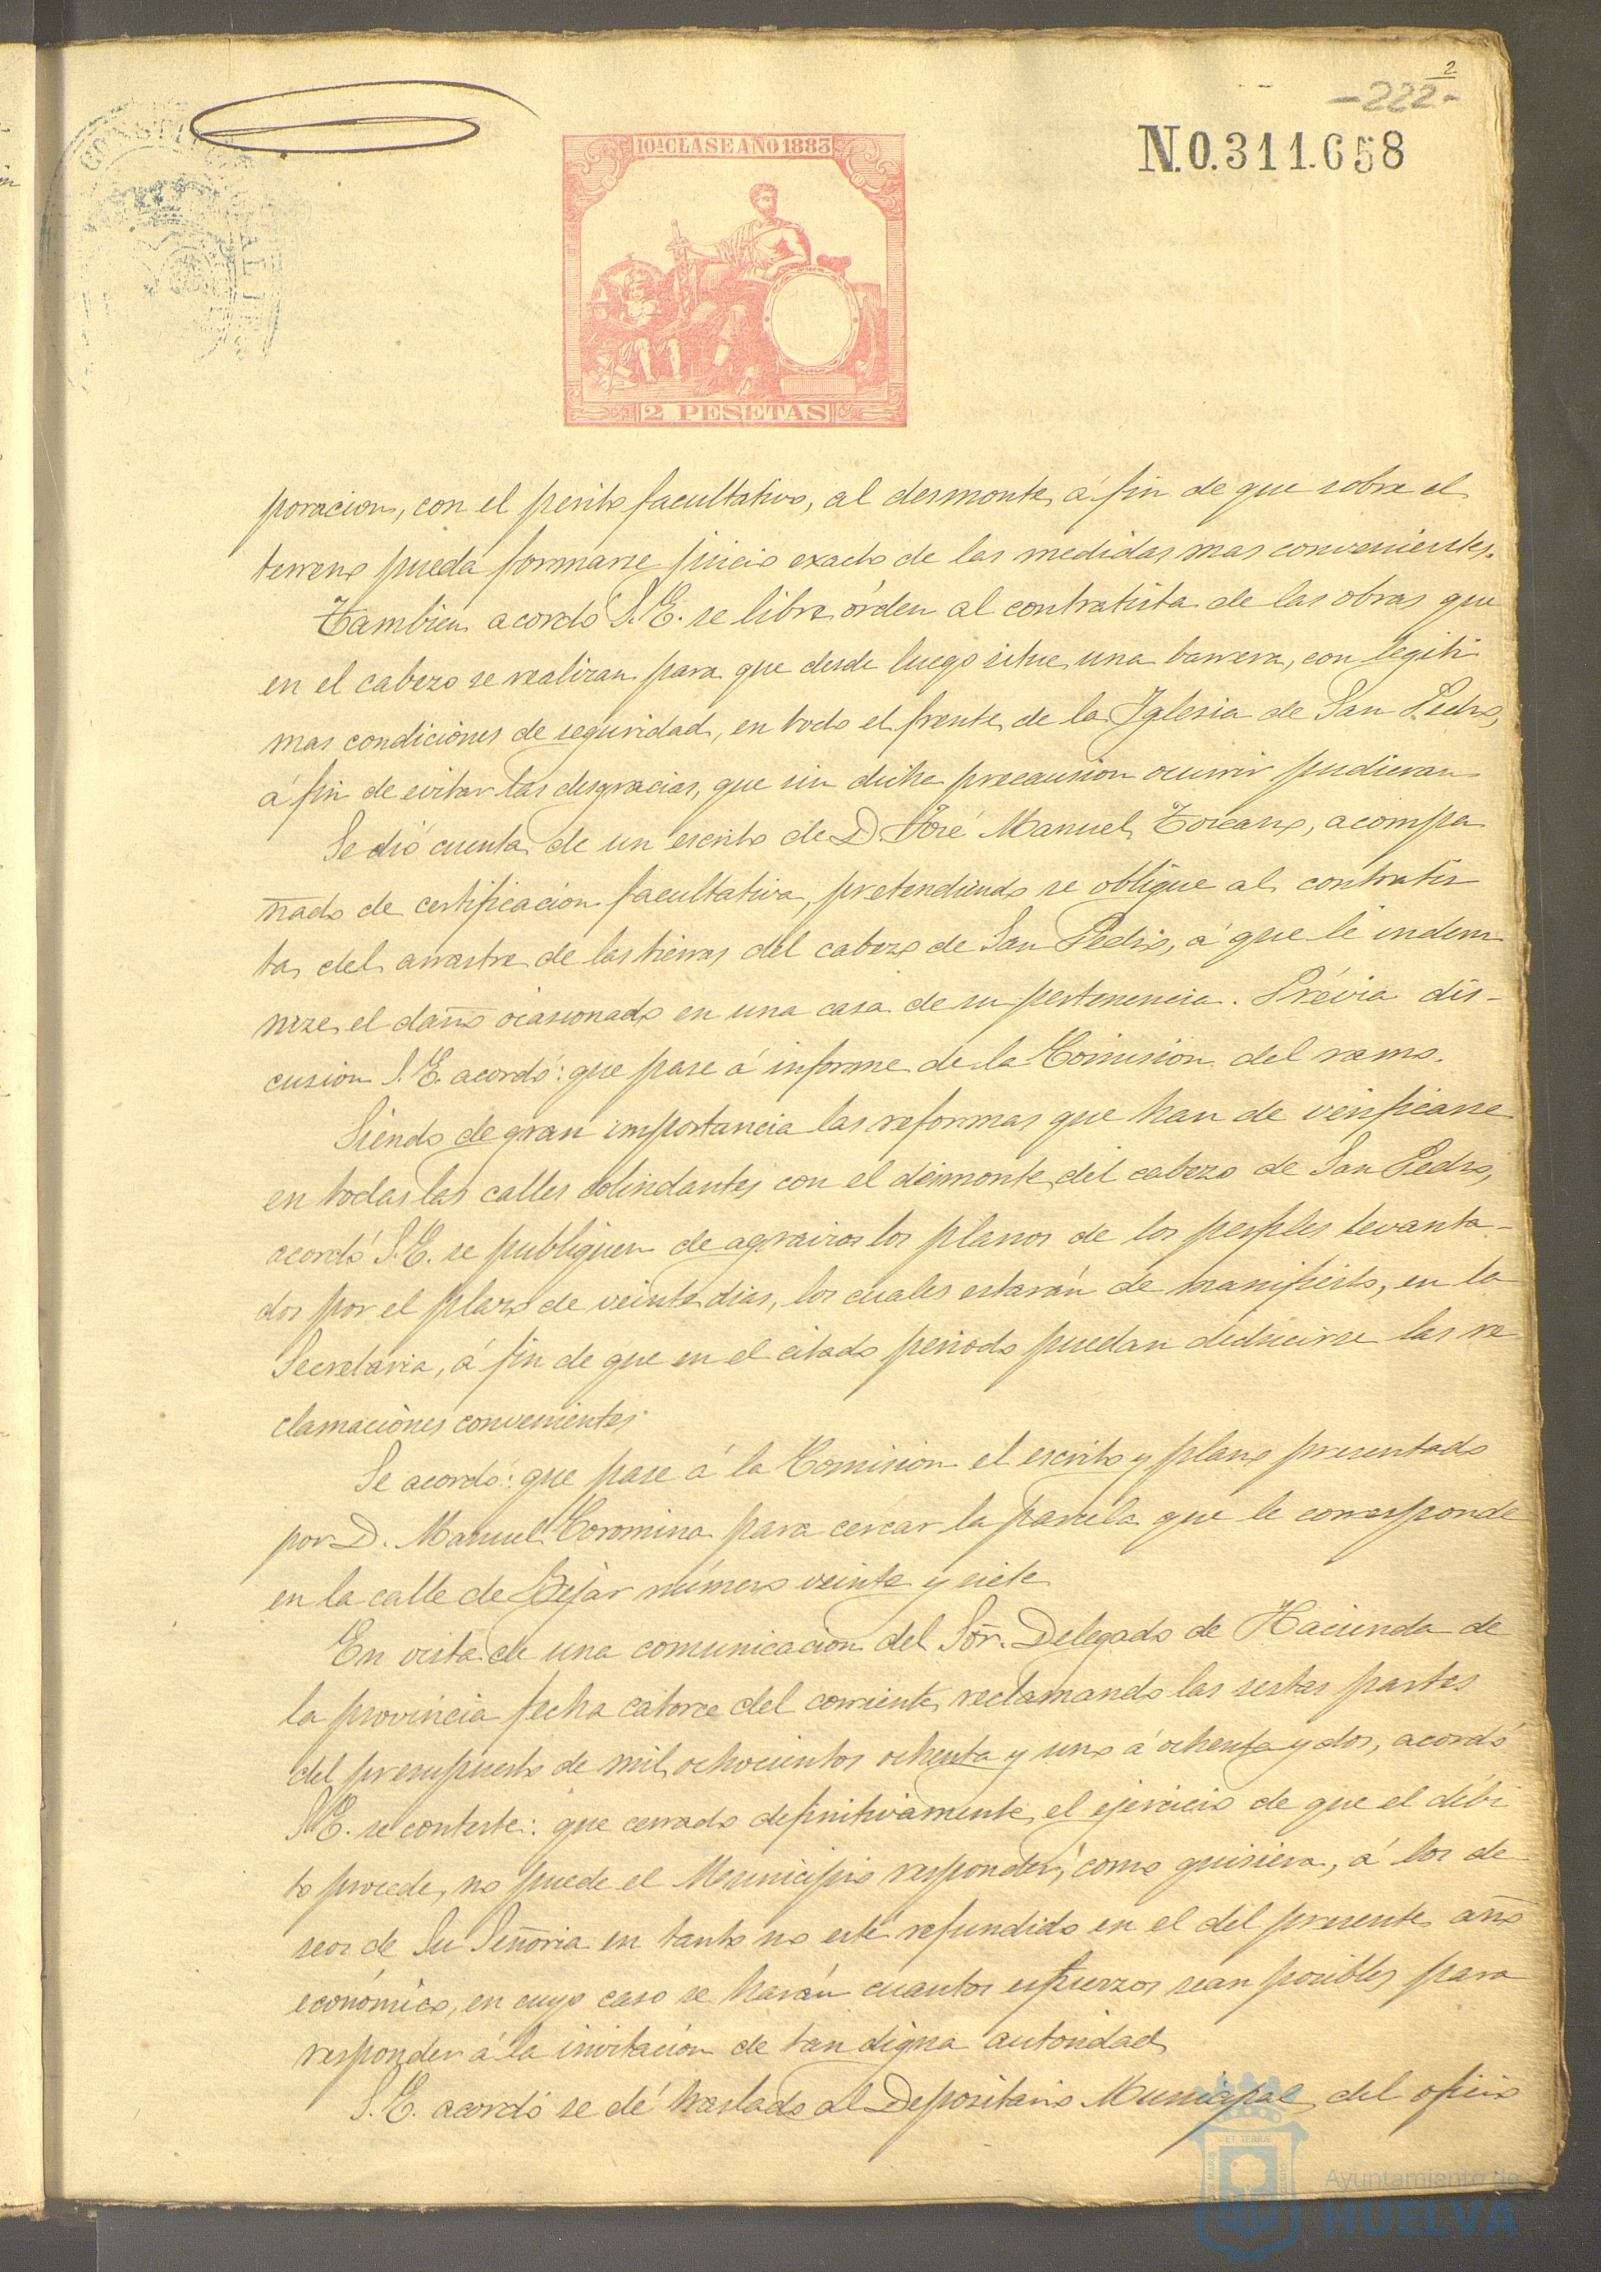 2
-222-
N.0.311.658
CONSTI
10ª CLASE AÑO 1883
2 PESETAS
poracion, con el perito facultativo, al desmonte, á fin de que sobre el
terreno pueda formarse juicio exacto de las medidas mas convenientes.
Tambien acordó S.E. se libre órden al contratista de las obras que
en el cabezo se realizan para que desde luego situe una barrera, con legiti
mas condiciones de seguridad, en todo el frente de la Iglesia de San Pedro,
á fin de evitar las desgracias, que sin dicha precausion ocurrir pudieran
Se dió cuenta de un escrito de D. José Manuel Toscano, acompa
ñado de certificacion facultativa, pretendiendo se obligue al contratis
ta del arrastre de las tierras del cabezo de San Pedro, á que le indem
nize el daño ocasionado en una casa de su pertenencia. Prévia dis-
cusion S.E. acordó: que pase á informe de la Comision del ramo.
Siendo de gran importancia las reformas que han de verificarse
en todas las calles colindantes con el desmonte del cabezo de San Pedro,
acordó S.E. se publiquen de agravios los planos de los perfiles levanta-
dos por el plazo de veinte dias, los cuales estarán de manifiesto, en la
Secretaria, á fin de que en el citado periodo puedan deducirse las re
clamaciones convenientes.
Se acordó: que pase á la Comision el escrito y plano presentado
por D. Manuel Coromina para cercar la parcela que le corresponde
en la calle de Bejar número veinte y siete
En vista de una comunicacion del Sor. Delegado de Hacienda de
la provincia fecha catorce del corriente, reclamando las sestas partes
del presupuesto de mil ochocientos ochenta y uno á ochenta y dos, acordó
S.E. se conteste: que cerrado definitivamente el ejercicio de que el débi
to procede, no puede el Municipio responder, como quisiera, á los de
seos de Su Señoria en tanto no esté refundido en el del presente año
económico, en cuyo caso se harán cuantos esfuerzos sean posibles para
responder á la invitacion de tan digna autoridad
S.E. acordó se dé traslado al Depositario Municipal del oficio
ET TERRÆ
Ayuntamiento de
HUELVA